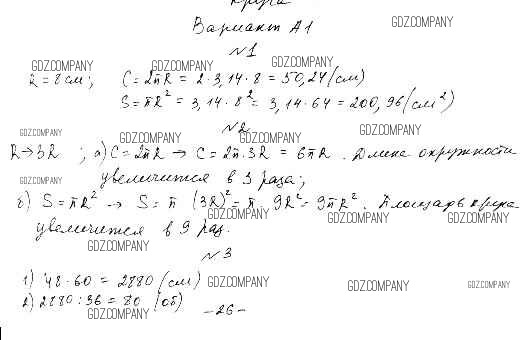 круга
Вариант А1
GDZ.COMPANY
№1
GDZ.COMPANY GDZ.COMPANY GDZ.COMPANY
R = 8 см; C = 2πR = 2 · 3,14 · 8 = 50,24 (см)
S = πR² = 3,14 · 8² = 3,14 · 64 = 200,96 (см²)
№2
GDZ.COMPANY GDZ.COMPANY GDZ.COMPANY
R → 3R ; а) C = 2πR → C = 2π · 3R = 6πR. Длина окружности
GDZ.COMPANY
увеличится в 3 раза;
б) S = πR² → S = π (3R)² = π · 9R² = 9πR². Площадь круга
GDZ.COMPANY GDZ.COMPANY GDZ.COMPANY
увеличится в 9 раз.
GDZ.COMPANY
№3
1) 48 · 60 = 2880 (см)
GDZ.COMPANY GDZ.COMPANY GDZ.COMPANY
2) 2880 : 36 = 80 (об)
GDZ.COMPANY
-26-